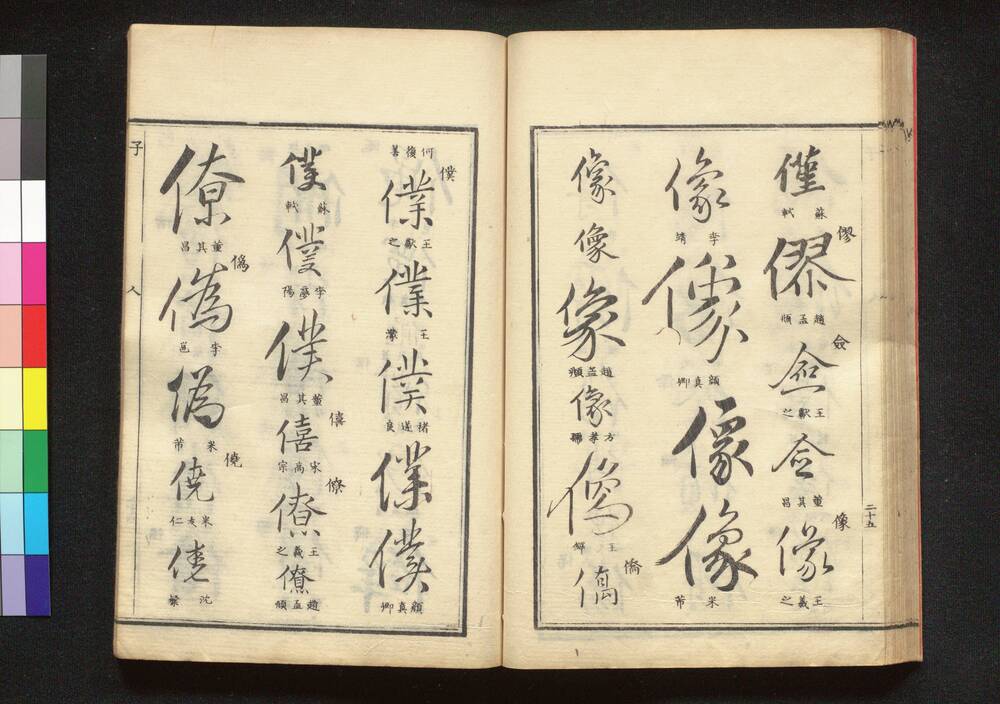 二十五
僅 蘇軾
僇
僇 趙孟頫
僉
僉 王獻之
僉 董其昌
像
像 王羲之
像 李靖
像 顏真卿
像
像 米芾
像
像
像 趙孟頫
像 方孝孺
像 王鐸
僑
僑
何復
僕
僕 王獻之
僕 王濛
僕 褚遂良
僕
僕 顏真卿
僕 蘇軾
僕 李夢陽
僕 董其昌
僖
僖 宋高宗
僚
僚 王羲之
僚 趙孟頫
僚 董其昌
僞
僞 李邕
僞 米芾
僥
僥 米友仁
僥 沈粲
子
人